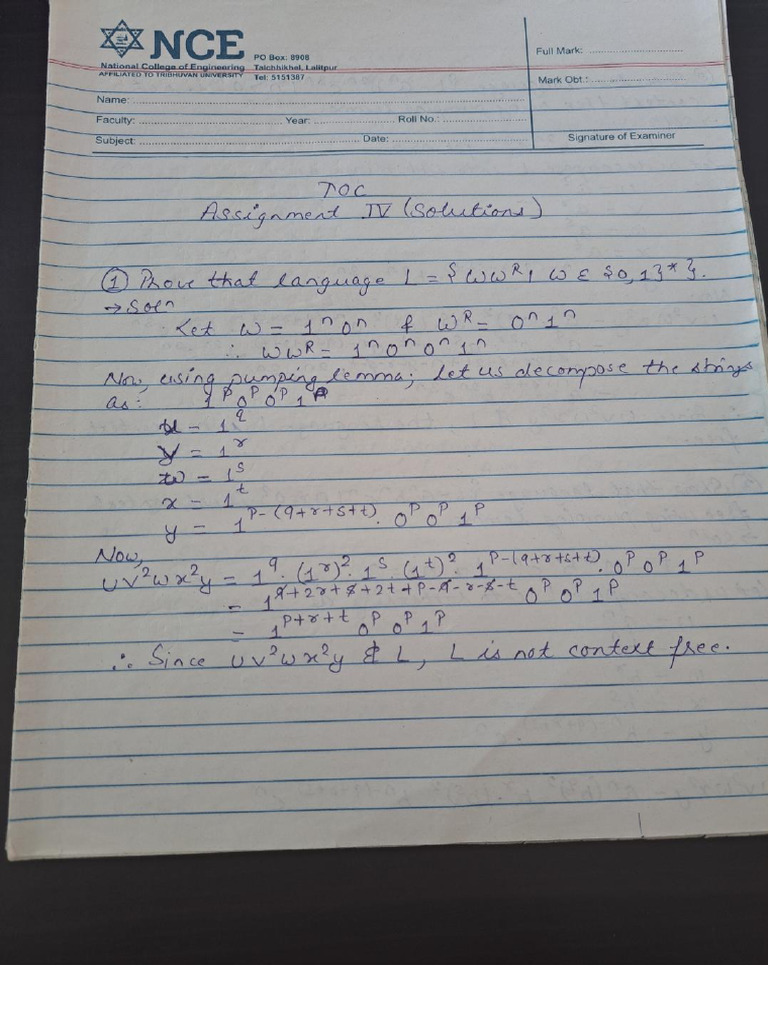 NCE
National College of Engineering
AFFILIATED TO TRIBHUVAN UNIVERSITY
PO Box: 8908
Talchhikhel, Lalitpur
Tel: 5151387
Full Mark: ........................
Mark Obt.: ........................
Name: ........................
Faculty: ........................ Year: ........................ Roll No.: ........................
Subject: ........................ Date: ........................
Signature of Examiner
TOC
Assignment IV (Solutions)
① Prove that language L = { wwᴿ | w ε {0,1}* }.
→ Solⁿ
Let w = 1ⁿ0ⁿ & wᴿ = 0ⁿ1ⁿ
∴ wwᴿ = 1ⁿ0ⁿ0ⁿ1ⁿ
Now, using pumping lemma; Let us decompose the strings
as: 1ᴾ0ᴾ0ᴾ1ᴾ
u = 1^q
v = 1^r
w = 1^s
x = 1^t
y = 1^(P-(q+r+s+t)). 0ᴾ 0ᴾ 1ᴾ
Now,
uv²wx²y = 1^q. (1^r)². 1^s. (1^t)². 1^(P-(q+r+s+t)). 0ᴾ 0ᴾ 1ᴾ
= 1^(q+2r+s+2t+P-q-r-s-t) 0ᴾ 0ᴾ 1ᴾ
= 1^(P+r+t) 0ᴾ 0ᴾ 1ᴾ
∴ Since uv²wx²y ∉ L, L is not context free.